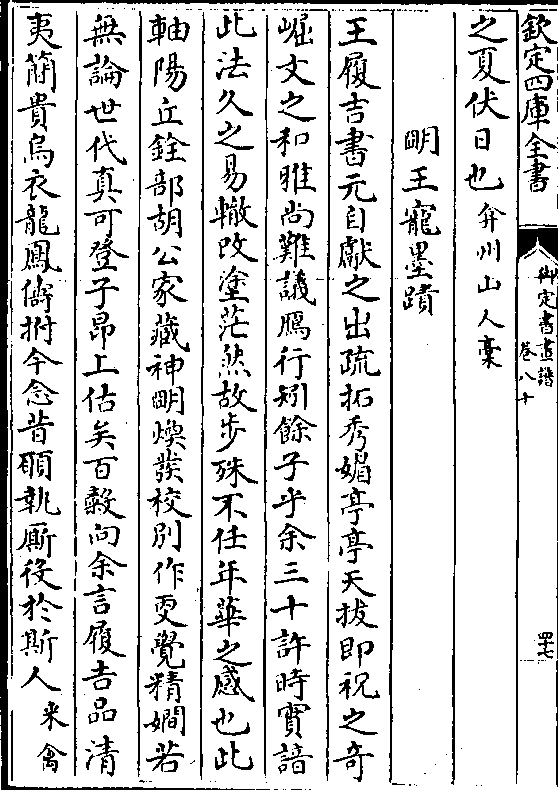 欽定四庫全書
御定書畫譜
卷八十
四七
之夏伏日也弇州山人稾
明王寵墨蹟
王履吉書元自獻之出疏拓秀媚亭亭天拔即祝之奇
崛文之和雅尚難議鴈行矧餘子乎余三十許時實諳
此法久之易轍改塗茫然故步殊不任年華之感也此
軸陽丘銓部胡公家藏神明煥發校別作更覺精嫺若
無論世代真可登子昂上估矣百穀向余言履吉品清
夷簡貴烏衣龍鳳儔拊今念昔願執厮役於斯人 米禽